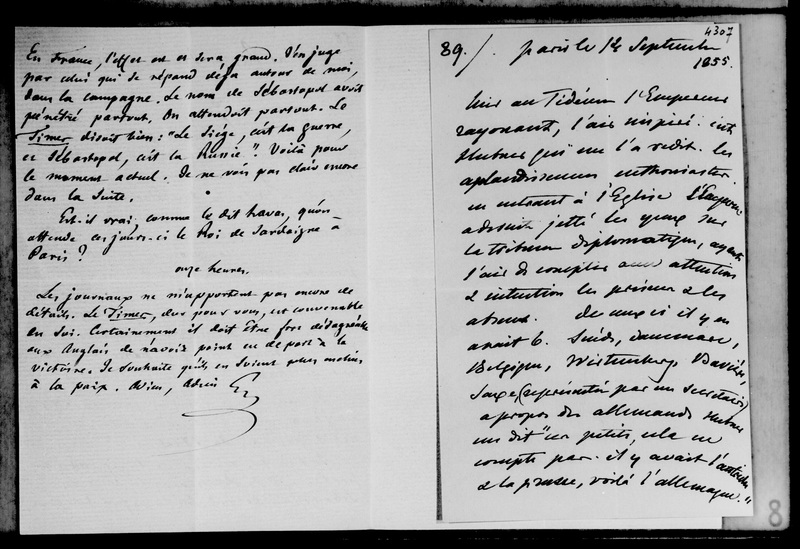 En France, l'effet est et sera grand. J'en juge
par celui qui se répand déjà autour de moi,
dans la campagne. Le nom de Sébastopol avoit
pénétré partout. On attendoit partout. Le
Times disoit bien : "Le Siège, c'est la guerre,
et Sébastopol, c'est la Russie." Voilà pour
le moment actuel. Je ne vois pas clair encore
dans la Suite.
Est-il vrai, comme le dit havas, qu'on
attende ces jours-ci le Roi de Sardaigne à
Paris ?
onze heures.
Les journaux ne m'apportent pas encore de
détails. Le Times, dur pour vous, est convenable
en soi. Certainement il doit être fort désagréable
aux Anglais de n'avoir point eu de part à la
victoire. Je souhaite qu'ils en soient plus enclins
à la paix. Adieu, Adieu
4307
89./. Paris le 14 Septembre
1855.
hier au Tédéum l'Empereur
rayonnant, l'air inspiré. C'est
Hubner qui me l'a redit. les
aplaudissemens enthousiastes.
en entrant à l'Eglise l'Empereur
a de suite jetté les yeux sur
la tribune diplomatique, ayant
l'air de compter avec attention
& intention les présens & les
absens. de ceux-ci il y en
avait 6. Suède, Dannemarc,
Belgique, Wirtemberg, Bavière,
Saxe, (représenté par un secrétaire)
a propos des allemands Hubner
me dit "ces petits, cela ne
compte pas. il y avait l'autriche
& la prusse, voilà l'allemagne."
8